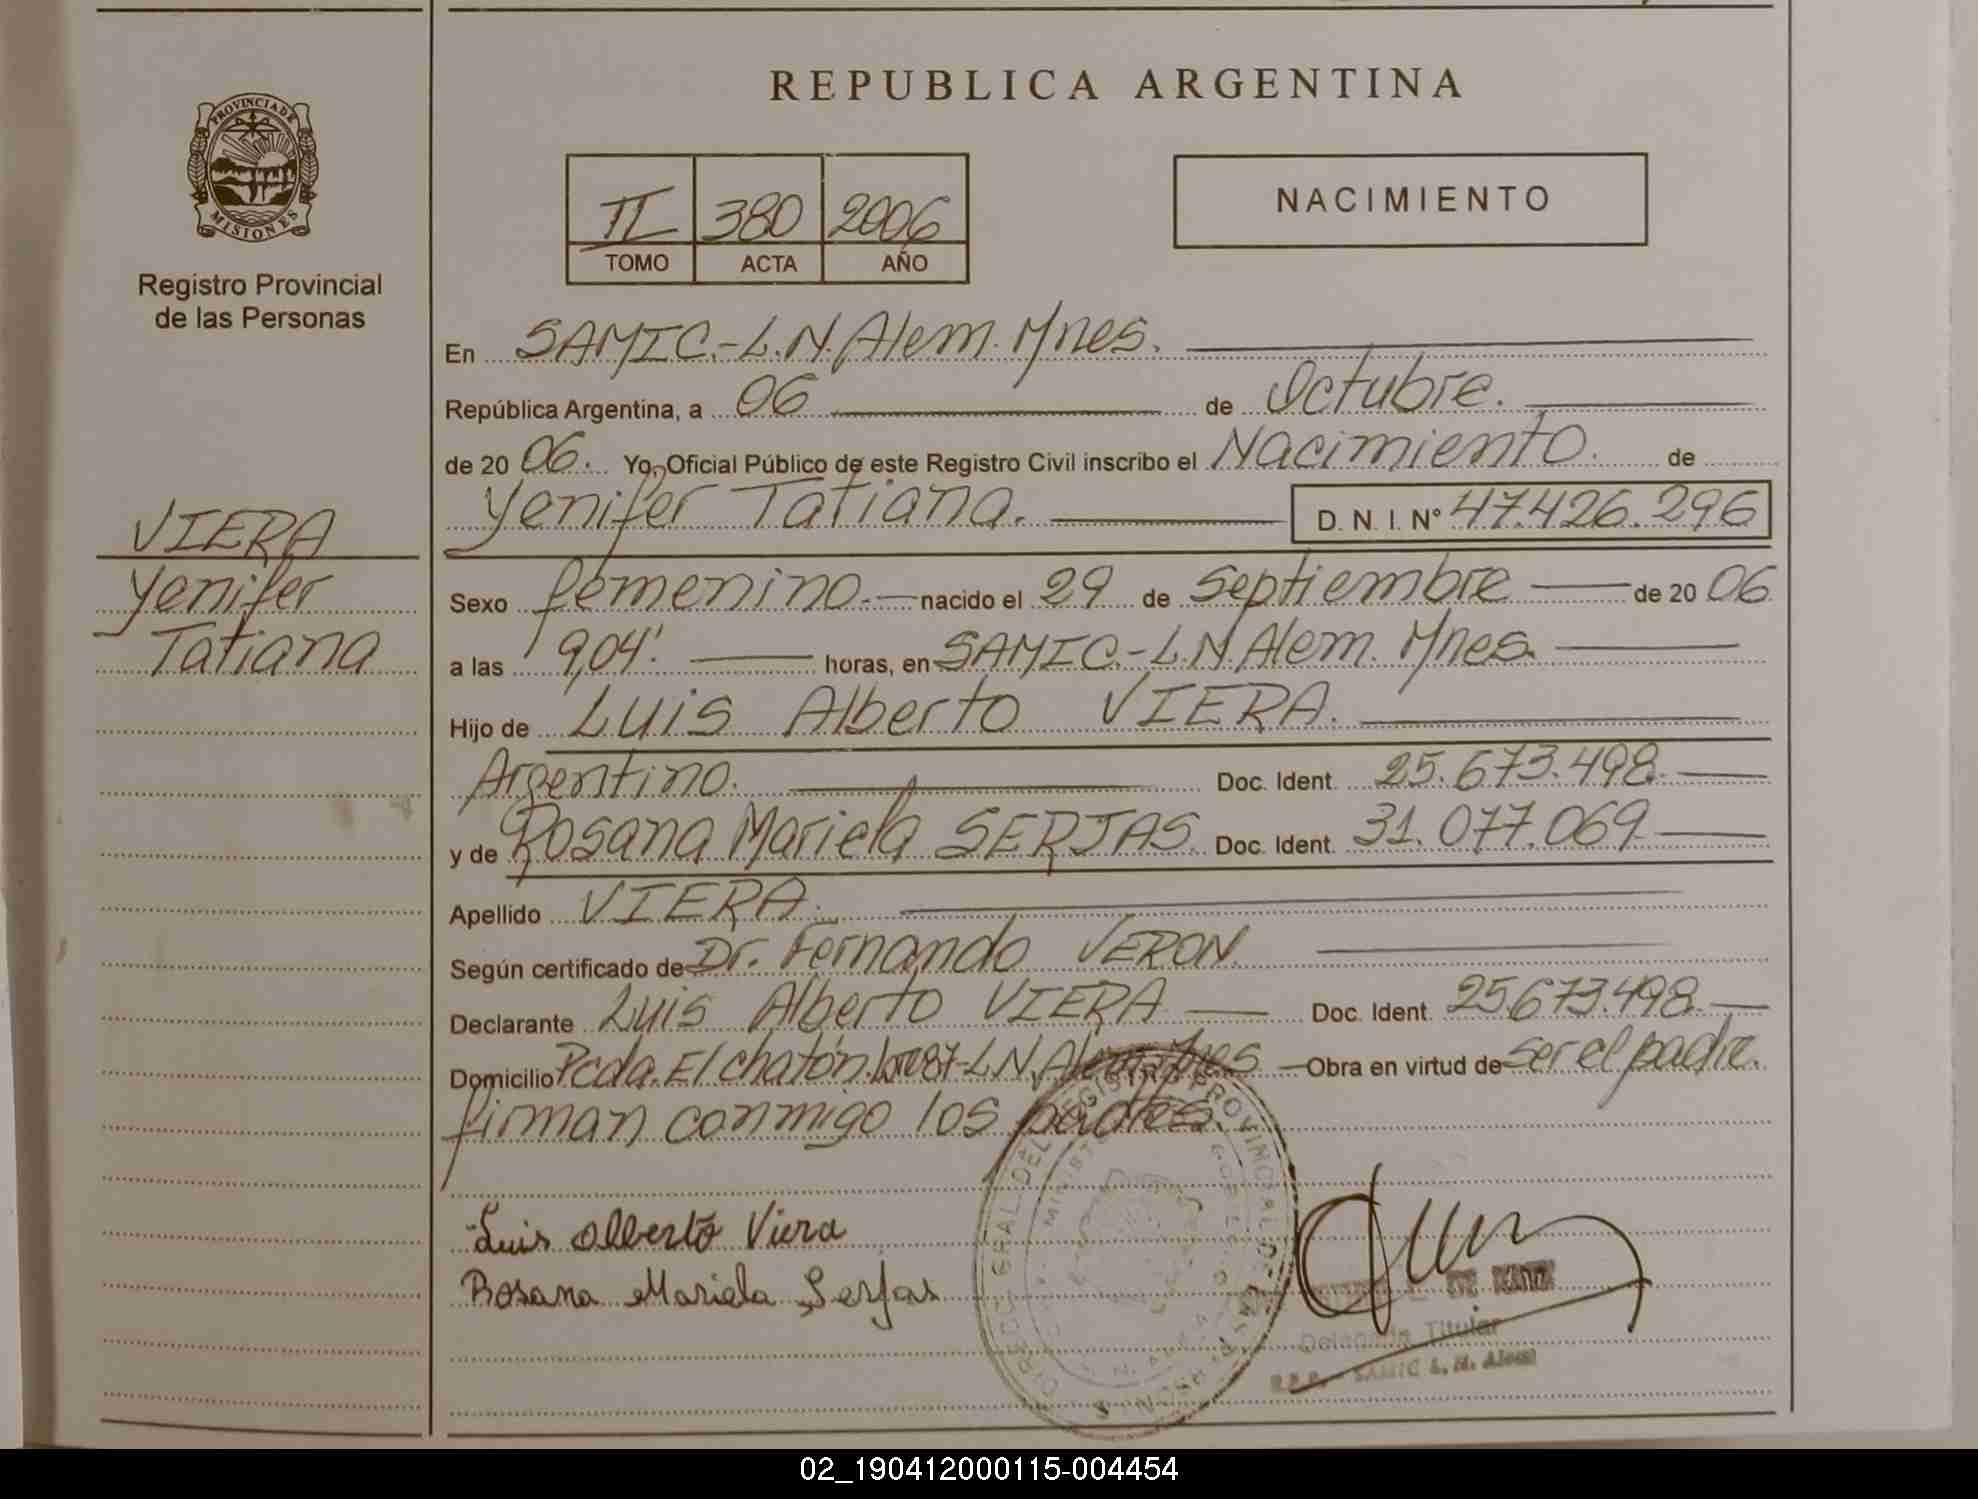 REPUBLICA ARGENTINA
PROVINCIA DE MISIONES
Registro Provincial
de las Personas
II 380 2006
TOMO ACTA AÑO
NACIMIENTO
En SAMIC.-L.N.Alem. Mnes.
República Argentina, a 06 de Octubre.
de 20 06. Yo, Oficial Público de este Registro Civil inscribo el Nacimiento. de
Yenifer Tatiana. D. N. I. N° 47.426.296
VIERA
Yenifer
Tatiana
Sexo femenino.- nacido el 29 de Septiembre de 20 06
a las 9,04'. horas, en SAMIC.-L.N.Alem. Mnes.
Hijo de Luis Alberto VIERA.
Argentino. Doc. Ident. 25.673.498.
y de Rosana Mariela SERJAS. Doc. Ident. 31.077.069
Apellido VIERA.
Según certificado de Dr. Fernando VERON.
Declarante Luis Alberto VIERA Doc. Ident. 25.673.498.
Domicilio Pcda. El chatón. 87-L.N.Alem. Mnes Obra en virtud de ser el padre.
firman conmigo los padres.
Luis Alberto Viera
Rosana Mariela Serjas
DIRECC. GRAL. DEL REGISTRO PROVINCIAL DE LAS PERSONAS
DE
Delegada Titular
R.P.P. - SAMIC L. N. Alem
02_190412000115-004454